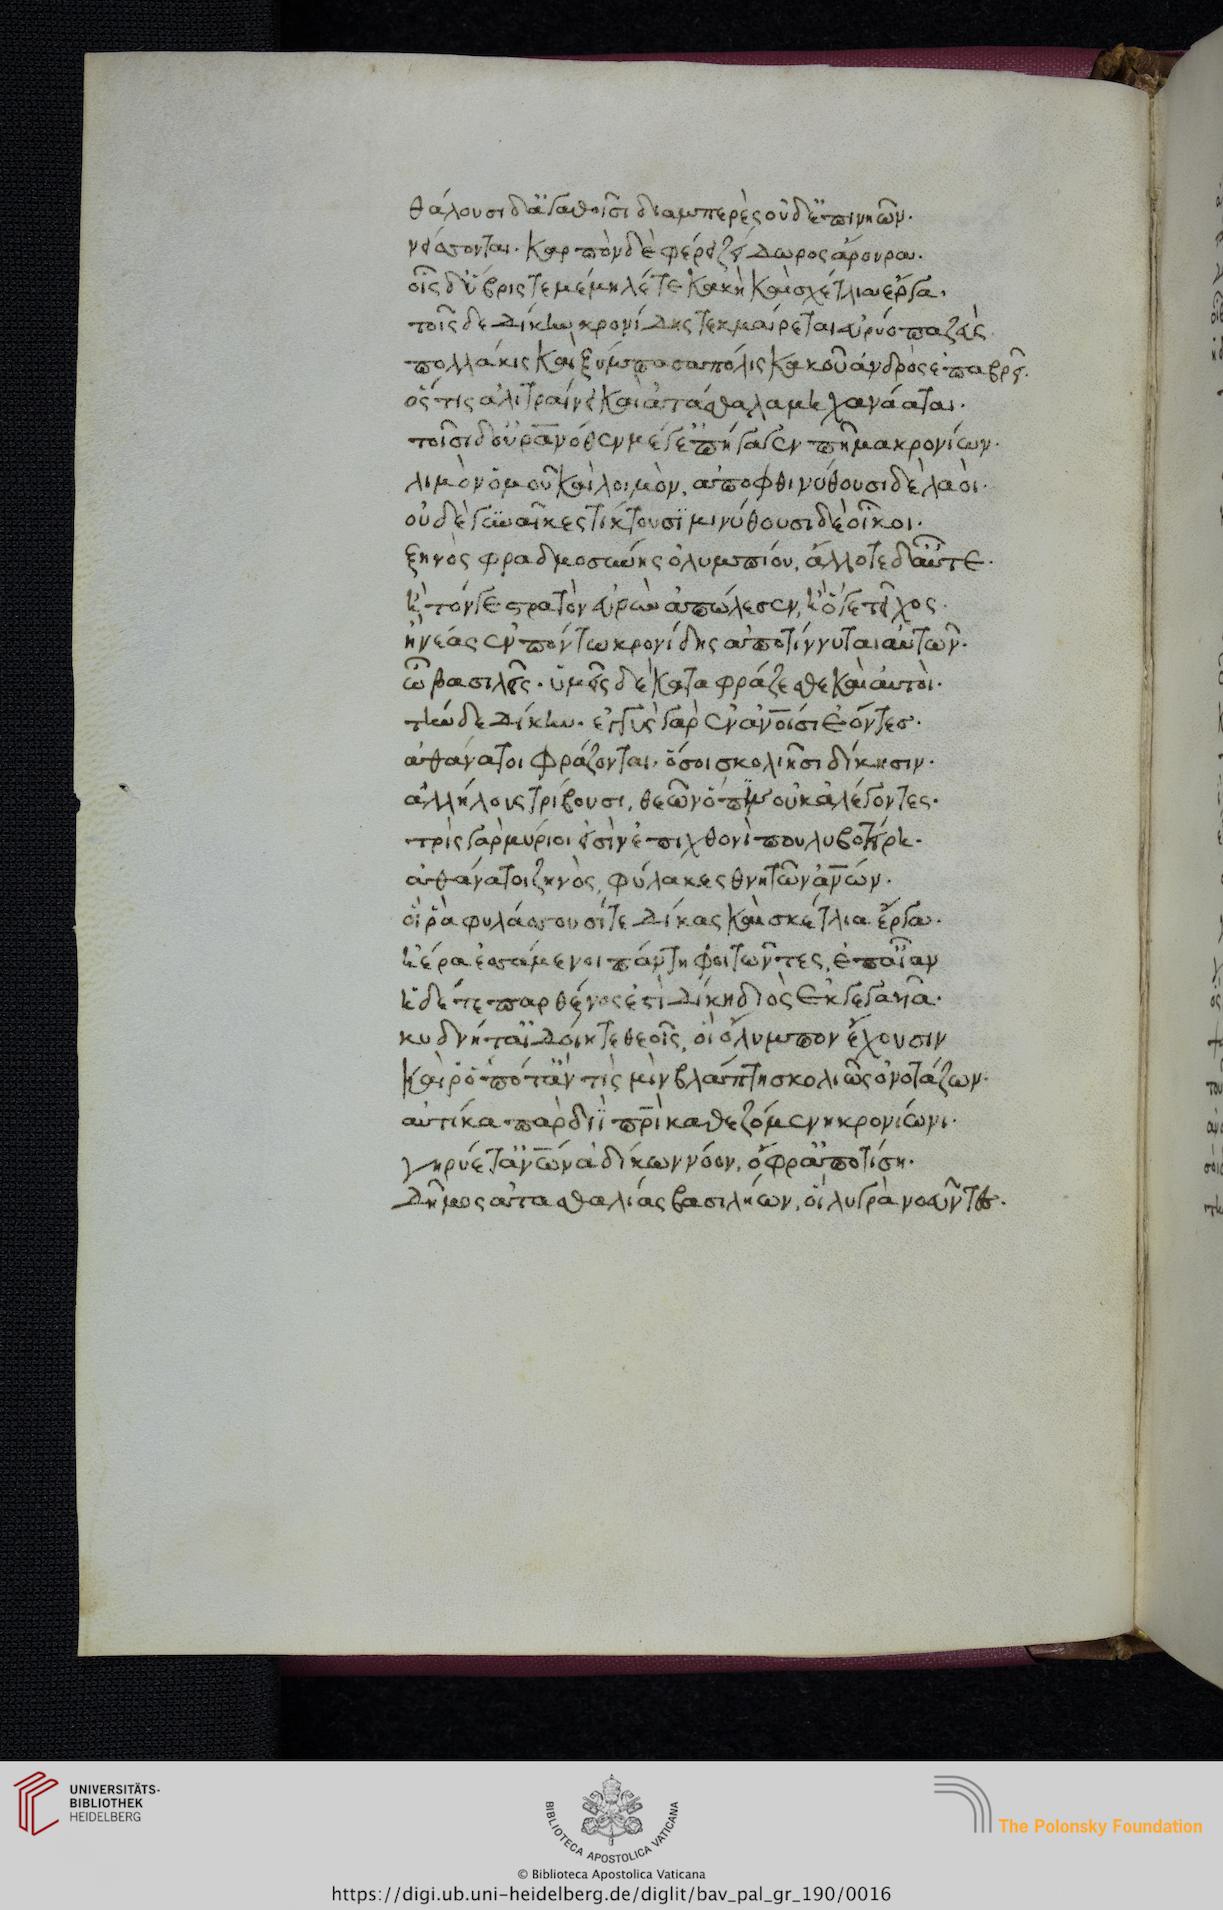 θάλουσι δ' ἀγαθοῖσι διαμπερὲς οὐδ' ἐπὶ νηῶν.
νείσσονται. καρπὸν δὲ φέρει ζείδωρος ἄρουρα.
οἷς δ' ὕβρις τε μέμηλέ τε κακὴ καὶ σχέτλια ἔργα.
τοῖς δε δίκην κρονίδης τεκμαίρεται εὐρύοπα ζεὺς.
πολλάκις καὶ ξύμπασα πόλις κακοῦ ἀνδρὸς ἐπαυρεῖ.
ὅς τις ἀλιτραίνει καὶ ἀτάσθαλα μηχανάαται.
τοῖσι δ' οὐρανόθεν μέγ' ἐπήγαγεν πῆμα κρονίων.
λιμὸν ὁμοῦ καὶ λοιμὸν, ἀποφθινύθουσι δὲ λαοὶ.
οὐδὲ γυναῖκες τίκτουσι μινύθουσι δὲ οἶκοι.
ζηνὸς φραδμοσύνης ὀλυμπίου, ἄλλοτε δ' αὖτε.
ἢ τόνγε στρατὸν εὐρὺν ἀπώλεσεν, ἢ ὅγε τεῖχος.
ἢ νέας ἐν πόντω κρονίδης ἀποτίννυται αὐτῶν.
ὦ βασιλεῖς. ὑμεῖς δὲ καταφράζεσθε καὶ αὐτοὶ.
τήνδε δίκην. ἐγγὺς γὰρ ἐν ἀνοῖσι ἐόντες.
ἀθάνατοι φράζονται, ὅσοι σκολιῆσι δίκησιν.
ἀλλήλους τρίβουσι, θεῶν ὄπιν οὐκ ἀλέγοντες.
τρὶς γὰρ μύριοι εἰσὶν ἐπὶ χθονὶ πουλυβοτείρη.
ἀθάνατοι ζηνὸς, φύλακες θνητῶν ἀνών.
οἵ ρὰ φυλάσσουσί τε δίκας καὶ σκέτλια ἔργα.
ἠέρα ἑσσάμενοι πάντη φοιτῶντες, ἐπ' αἶαν
ἡ δέ τε παρθένος ἐστὶ δίκη διὸς ἐκγεγαυῖα.
κυδνή τ' αἰδοίη τε θεοῖς, οἱ ὄλυμπον ἔχουσιν
καὶ ρ' ὁπότ' ἄν τὶς μὶν βλάπτη σκολιῶς ὀνοτάζων.
αὐτίκα παρ διῒ πρὶ καθεζομένη κρονίωνι.
γηρύετ' ἀνῶν ἀδίκων νόον, ὄφρ' ἀποτίση.
δῆμος ἀτασθαλίας βασιλήων, οἳ λυγρὰ νοεῦντες.
UNIVERSITÄTS-
BIBLIOTHEK
HEIDELBERG
BIBLIOTECA APOSTOLICA VATICANA
© Biblioteca Apostolica Vaticana
The Polonsky Foundation
https://digi.ub.uni-heidelberg.de/diglit/bav_pal_gr_190/0016